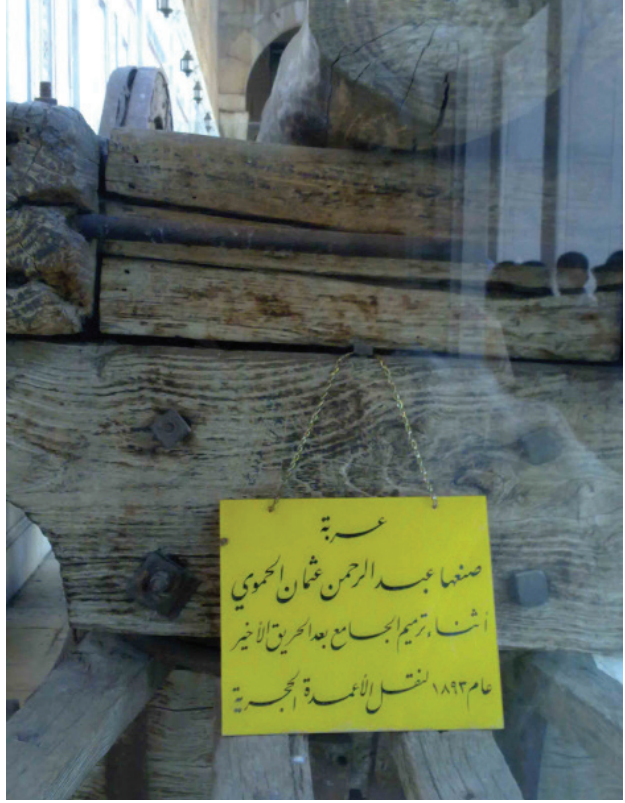 عربة
صنعها عبد الرحمن عثمان الحموي
أثناء ترميم الجامع بعد الحريق الأخير
عام ١٨٩٣ لنقل الأعمدة الحجرية